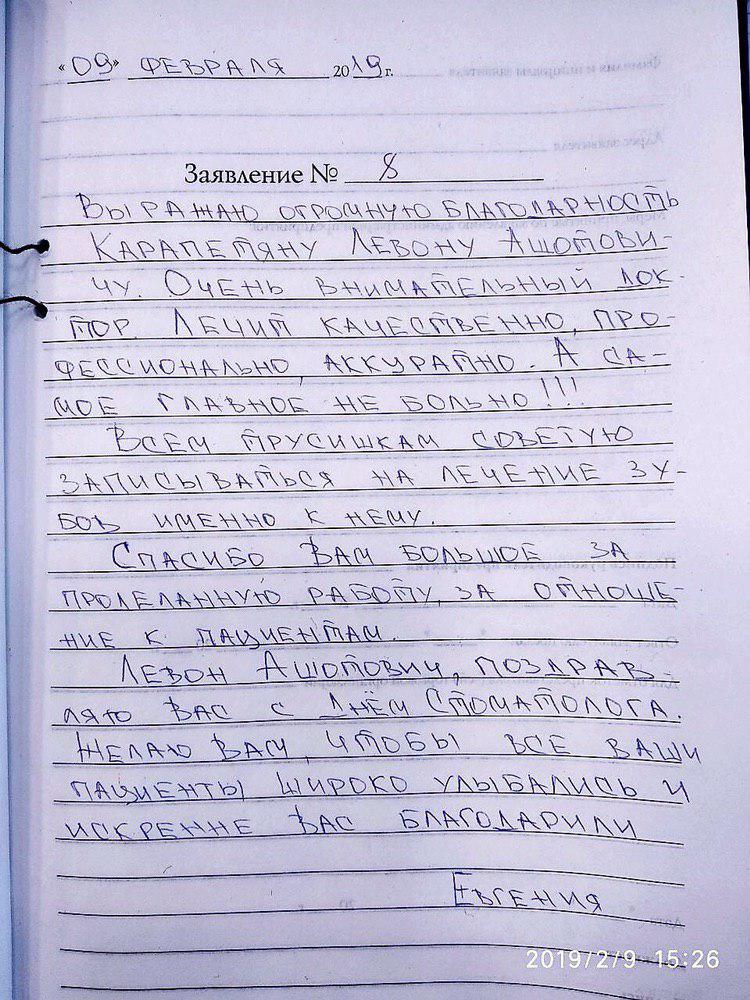 «09» ФЕВРАЛЯ 2019 г.
Заявление № 8
ВЫРАЖАЮ ОГРОМНУЮ БЛАГОДАРНОСТЬ
КАРАПЕТЯНУ ЛЕВОНУ АШОТОВИ-
ЧУ. ОЧЕНЬ ВНИМАТЕЛЬНЫЙ ДОК-
ТОР. ЛЕЧИТ КАЧЕСТВЕННО, ПРО-
ФЕССИОНАЛЬНО, АККУРАТНО. А СА-
МОЕ ГЛАВНОЕ НЕ БОЛЬНО!!!
ВСЕМ ТРУСИШКАМ СОВЕТУЮ
ЗАПИСЫВАТЬСЯ НА ЛЕЧЕНИЕ ЗУ-
БОВ ИМЕННО К НЕМУ.
СПАСИБО ВАМ БОЛЬШОЕ ЗА
ПРОДЕЛАННУЮ РАБОТУ, ЗА ОТНОШЕ-
НИЕ К ПАЦИЕНТАМ.
ЛЕВОН АШОТОВИЧ, ПОЗДРАВ-
ЛЯЮ ВАС С ДНЁМ СТОМАТОЛОГА.
ЖЕЛАЮ ВАМ, ЧТОБЫ ВСЕ ВАШИ
ПАЦИЕНТЫ ШИРОКО УЛЫБАЛИСЬ И
ИСКРЕННЕ ВАС БЛАГОДАРИЛИ
ЕВГЕНИЯ
2019/2/9 15:26